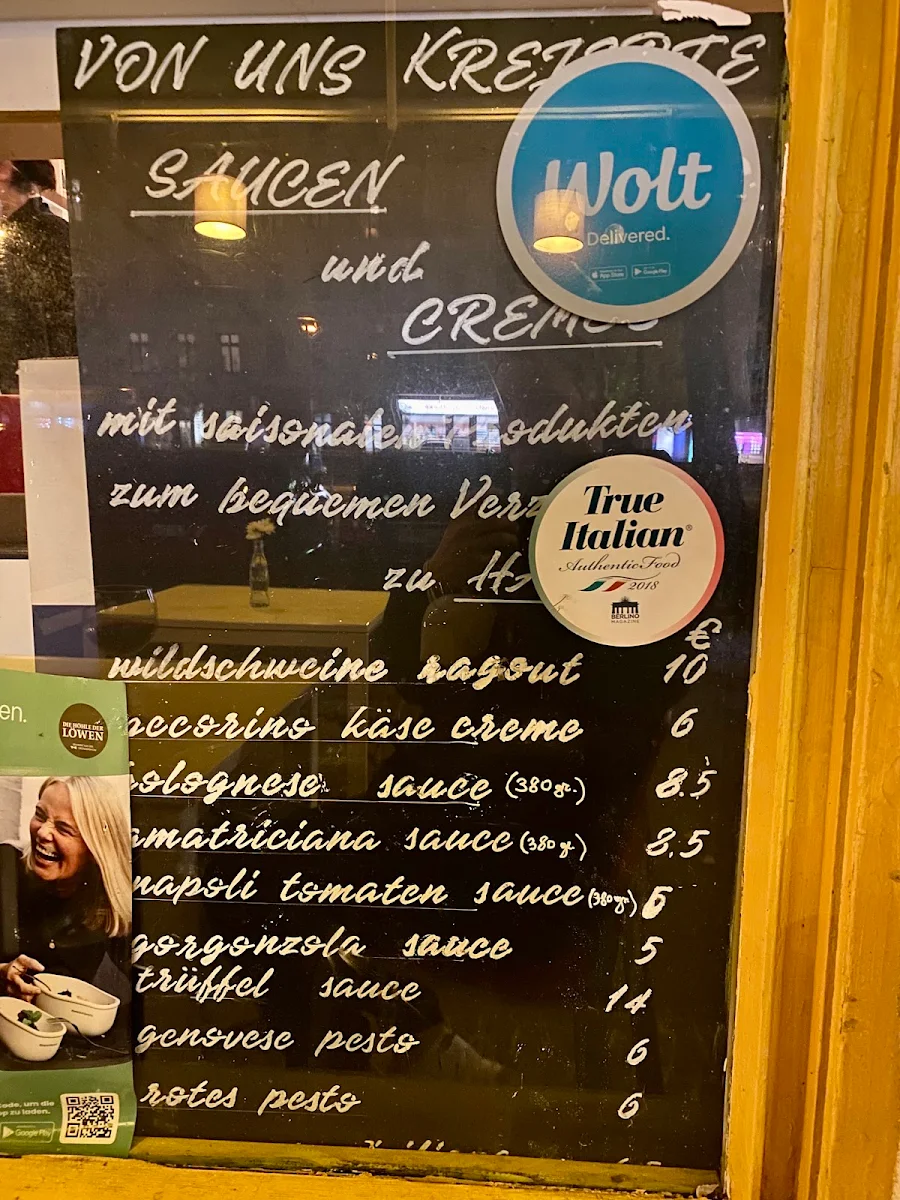 VON UNS
SAUCEN
Wolt
Delivered.
App Store Google Play
und
mit saisonalen Produkten
zum bequemen
zu
True
Italian®
Authentic Food
2018
BERLINO
MAGAZINE
€
wildschweine ragout 10
peccorino käse creme 6
bolognese sauce (380 gr.) 8.5
amatriciana sauce (380 gr.) 8.5
napoli tomaten sauce (380 gr)
gorgonzola sauce 5
trüffel sauce 14
genovese pesto 6
rotes pesto 6
en.
DIE HÖHLE DER
LÖWEN
code, um die
pp zu laden.
Google Play